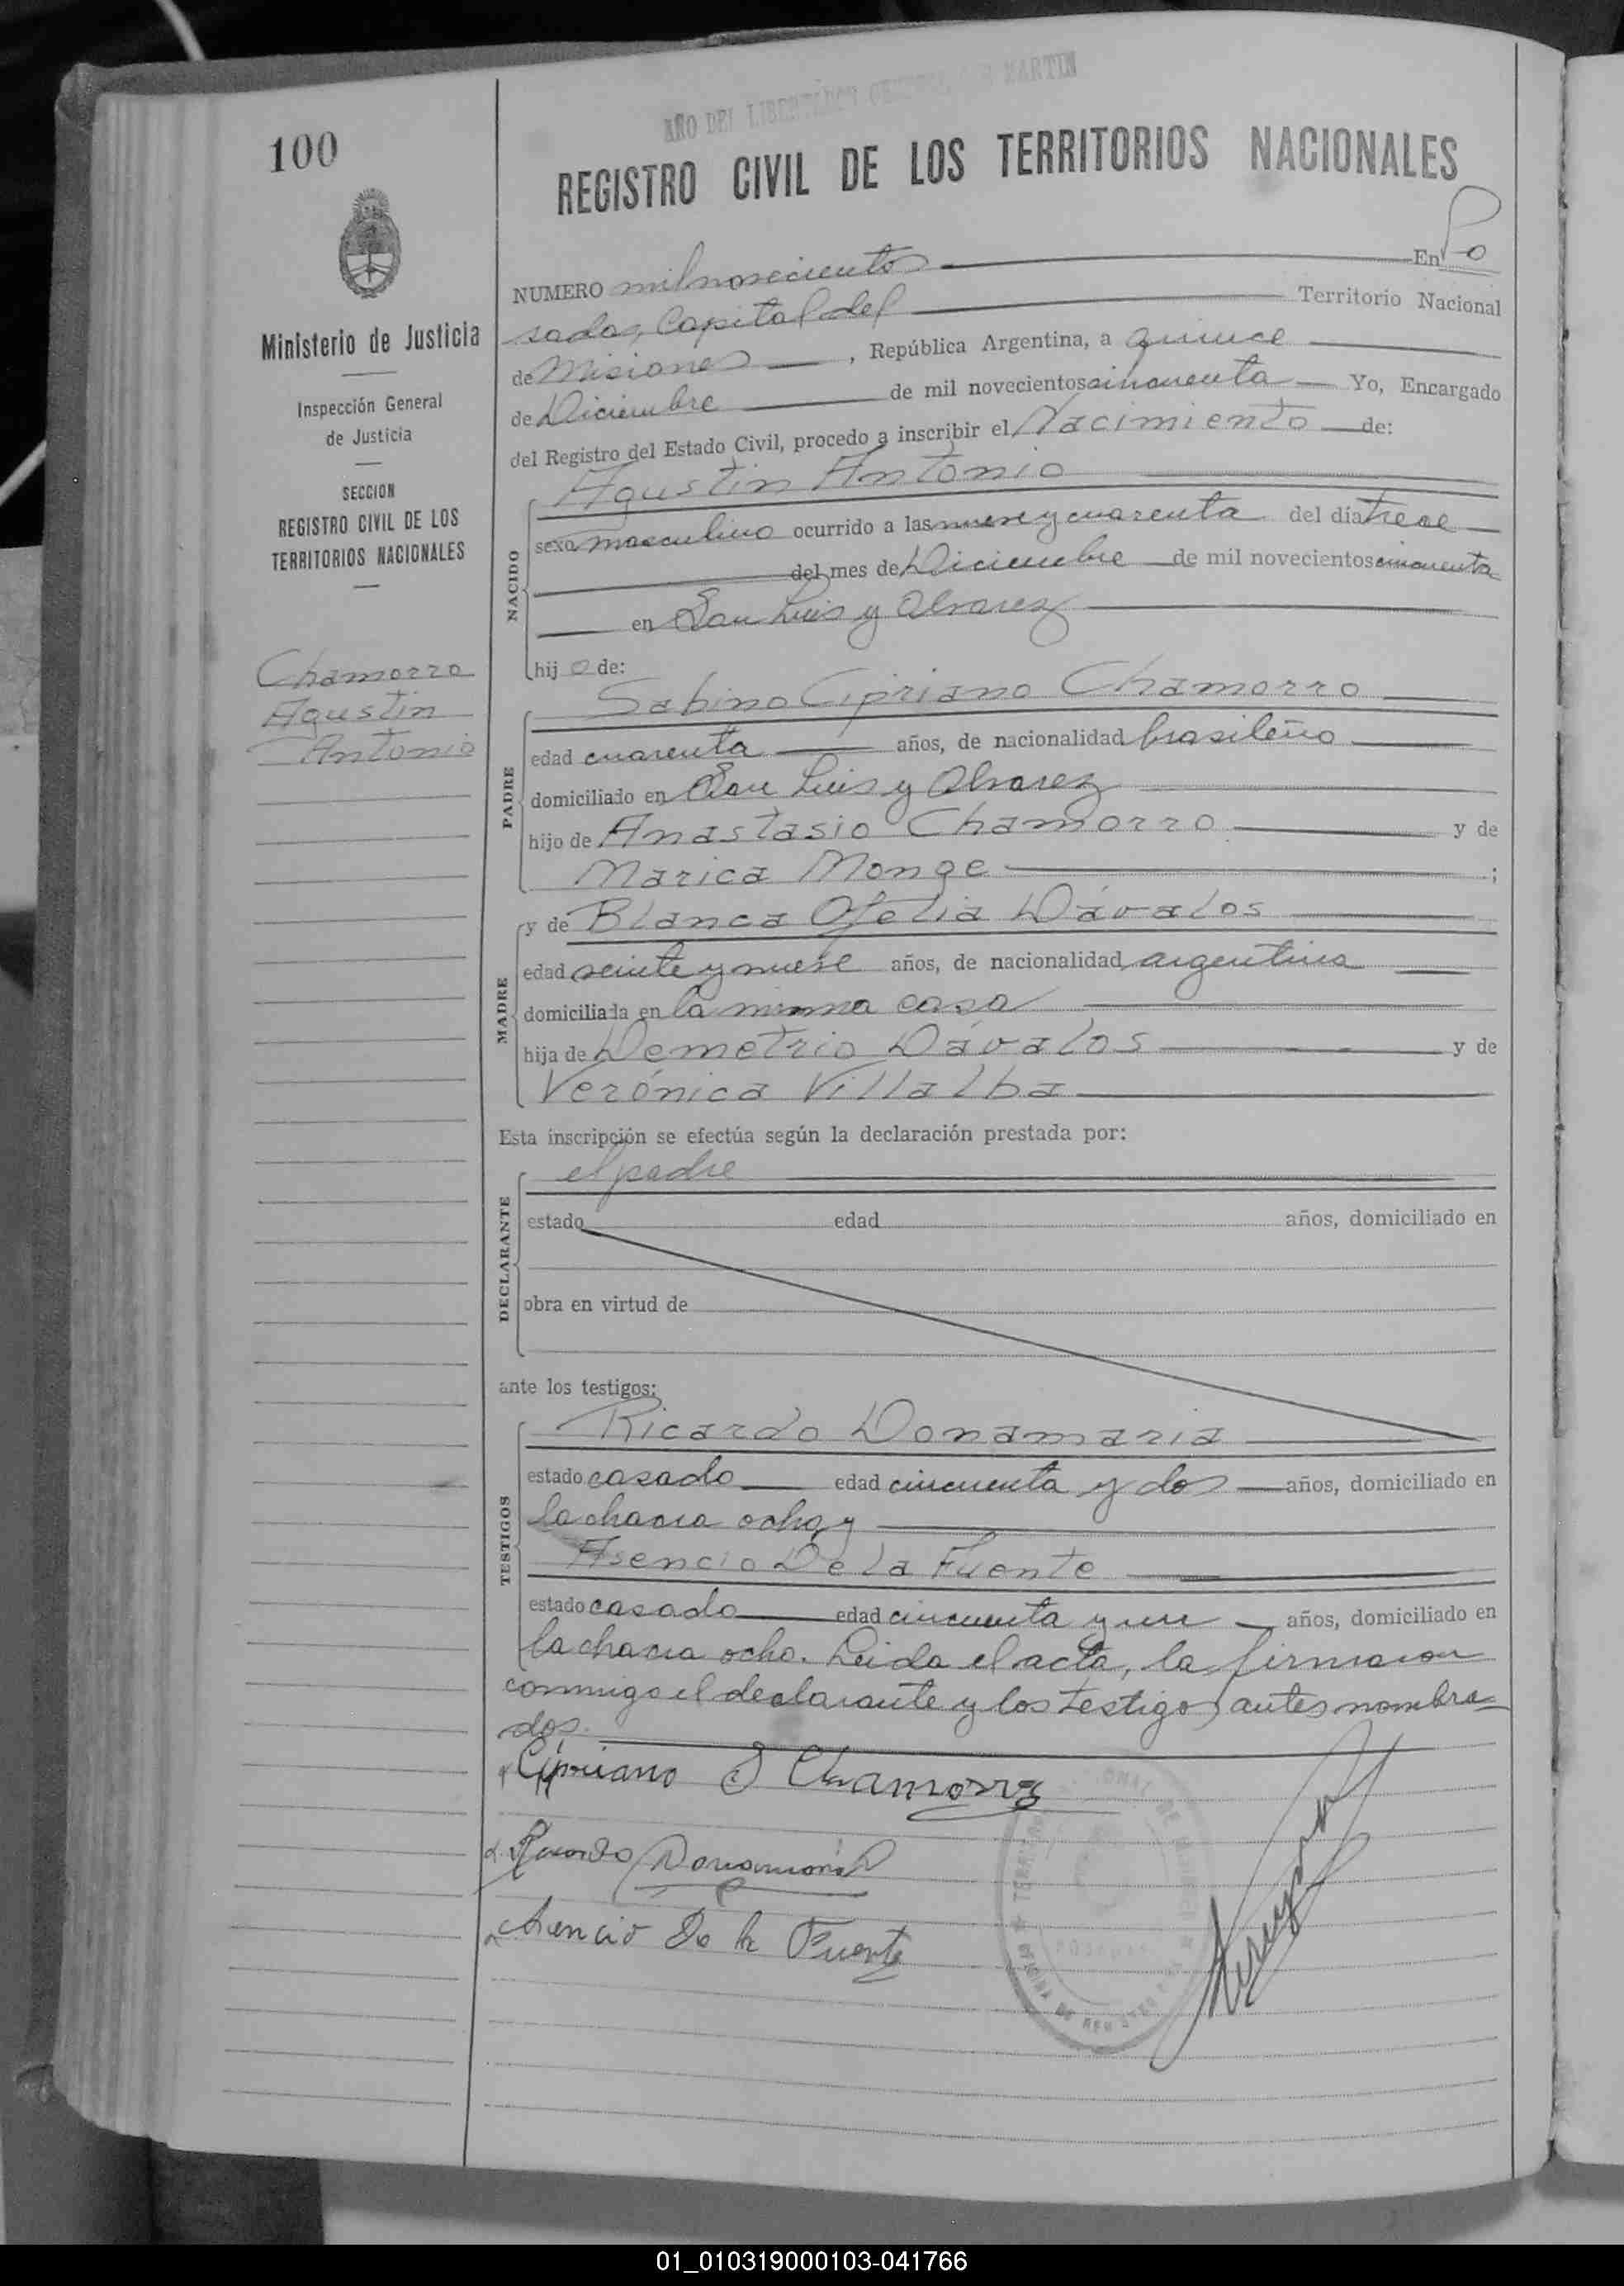 100
AÑO DEL LIBERTADOR GENERAL SAN MARTIN
REGISTRO CIVIL DE LOS TERRITORIOS NACIONALES
Ministerio de Justicia
Inspección General
de Justicia
SECCION
REGISTRO CIVIL DE LOS
TERRITORIOS NACIONALES
Chamorro
Agustin
Antonio
NUMERO mil novecientos En Po
sadas, Capital del Territorio Nacional
de Misiones, República Argentina, a quince
de Diciembre de mil novecientos cincuenta Yo, Encargado
del Registro del Estado Civil, procedo a inscribir el Nacimiento de:
NACIDO
Agustin Antonio
sexo masculino ocurrido a las nueve y cuarenta del día trece
del mes de Diciembre de mil novecientos cincuenta
en San Luis y Alvarez
hijo de:
PADRE
Sabino Cipriano Chamorro
edad cuarenta años, de nacionalidad brasileño
domiciliado en San Luis y Alvarez
hijo de Anastasio Chamorro y de
Marica Monge ;
MADRE
y de Blanca Ofelia Dávalos
edad veinte y nueve años, de nacionalidad argentina
domiciliada en la misma casa
hija de Demetrio Dávalos y de
Verónica Villalba
Esta inscripción se efectúa según la declaración prestada por:
DECLARANTE
el padre
estado edad años, domiciliado en
obra en virtud de
ante los testigos:
TESTIGOS
Ricardo Donamaria
estado casado edad cincuenta y dos años, domiciliado en
la chacra ocho y
Asencio De la Fuente
estado casado edad cincuenta y un años, domiciliado en
la chacra ocho. Leida el acta, la firmaron
conmigo el declarante y los testigos antes nombra-
dos.
Cipriano S Chamorro
Ricardo Donamaria
Asencio De la Fuente
01_010319000103-041766